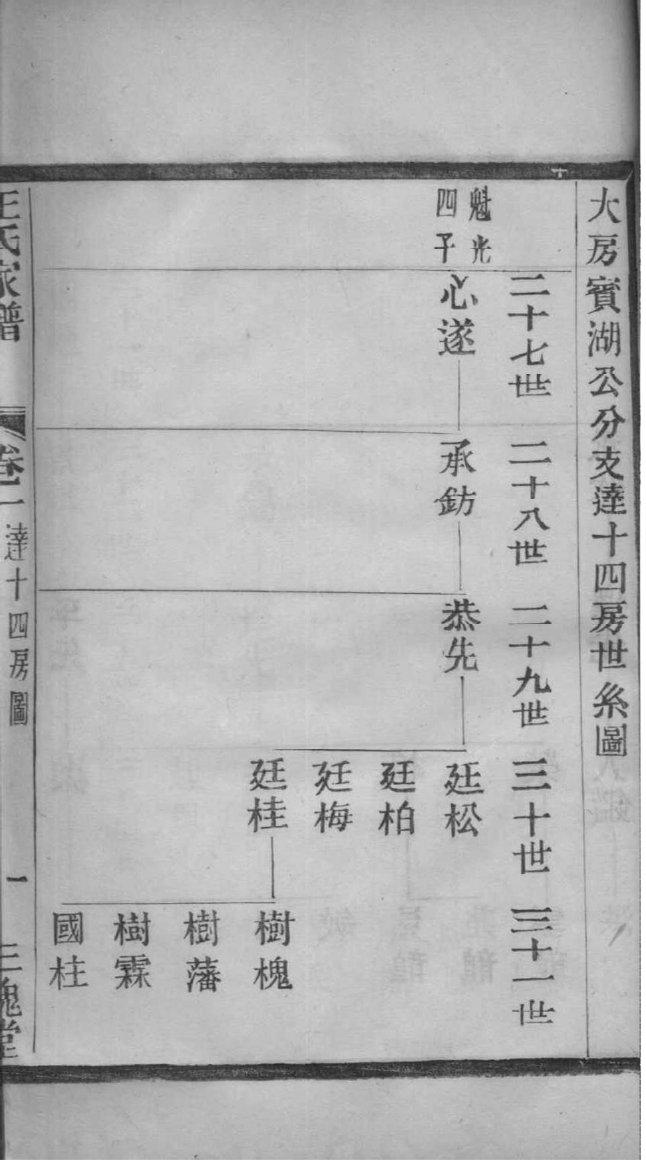 大房賓湖公分支逹十四房世系圖
二十七世
二十八世
二十九世
三十世
三十一世
魁光
四子
心遂
承鈁
恭先
廷松
廷柏
廷梅
廷桂
樹槐
樹藩
樹霖
國柱
王氏家譜
卷一
逹十四房圖
一
三槐堂